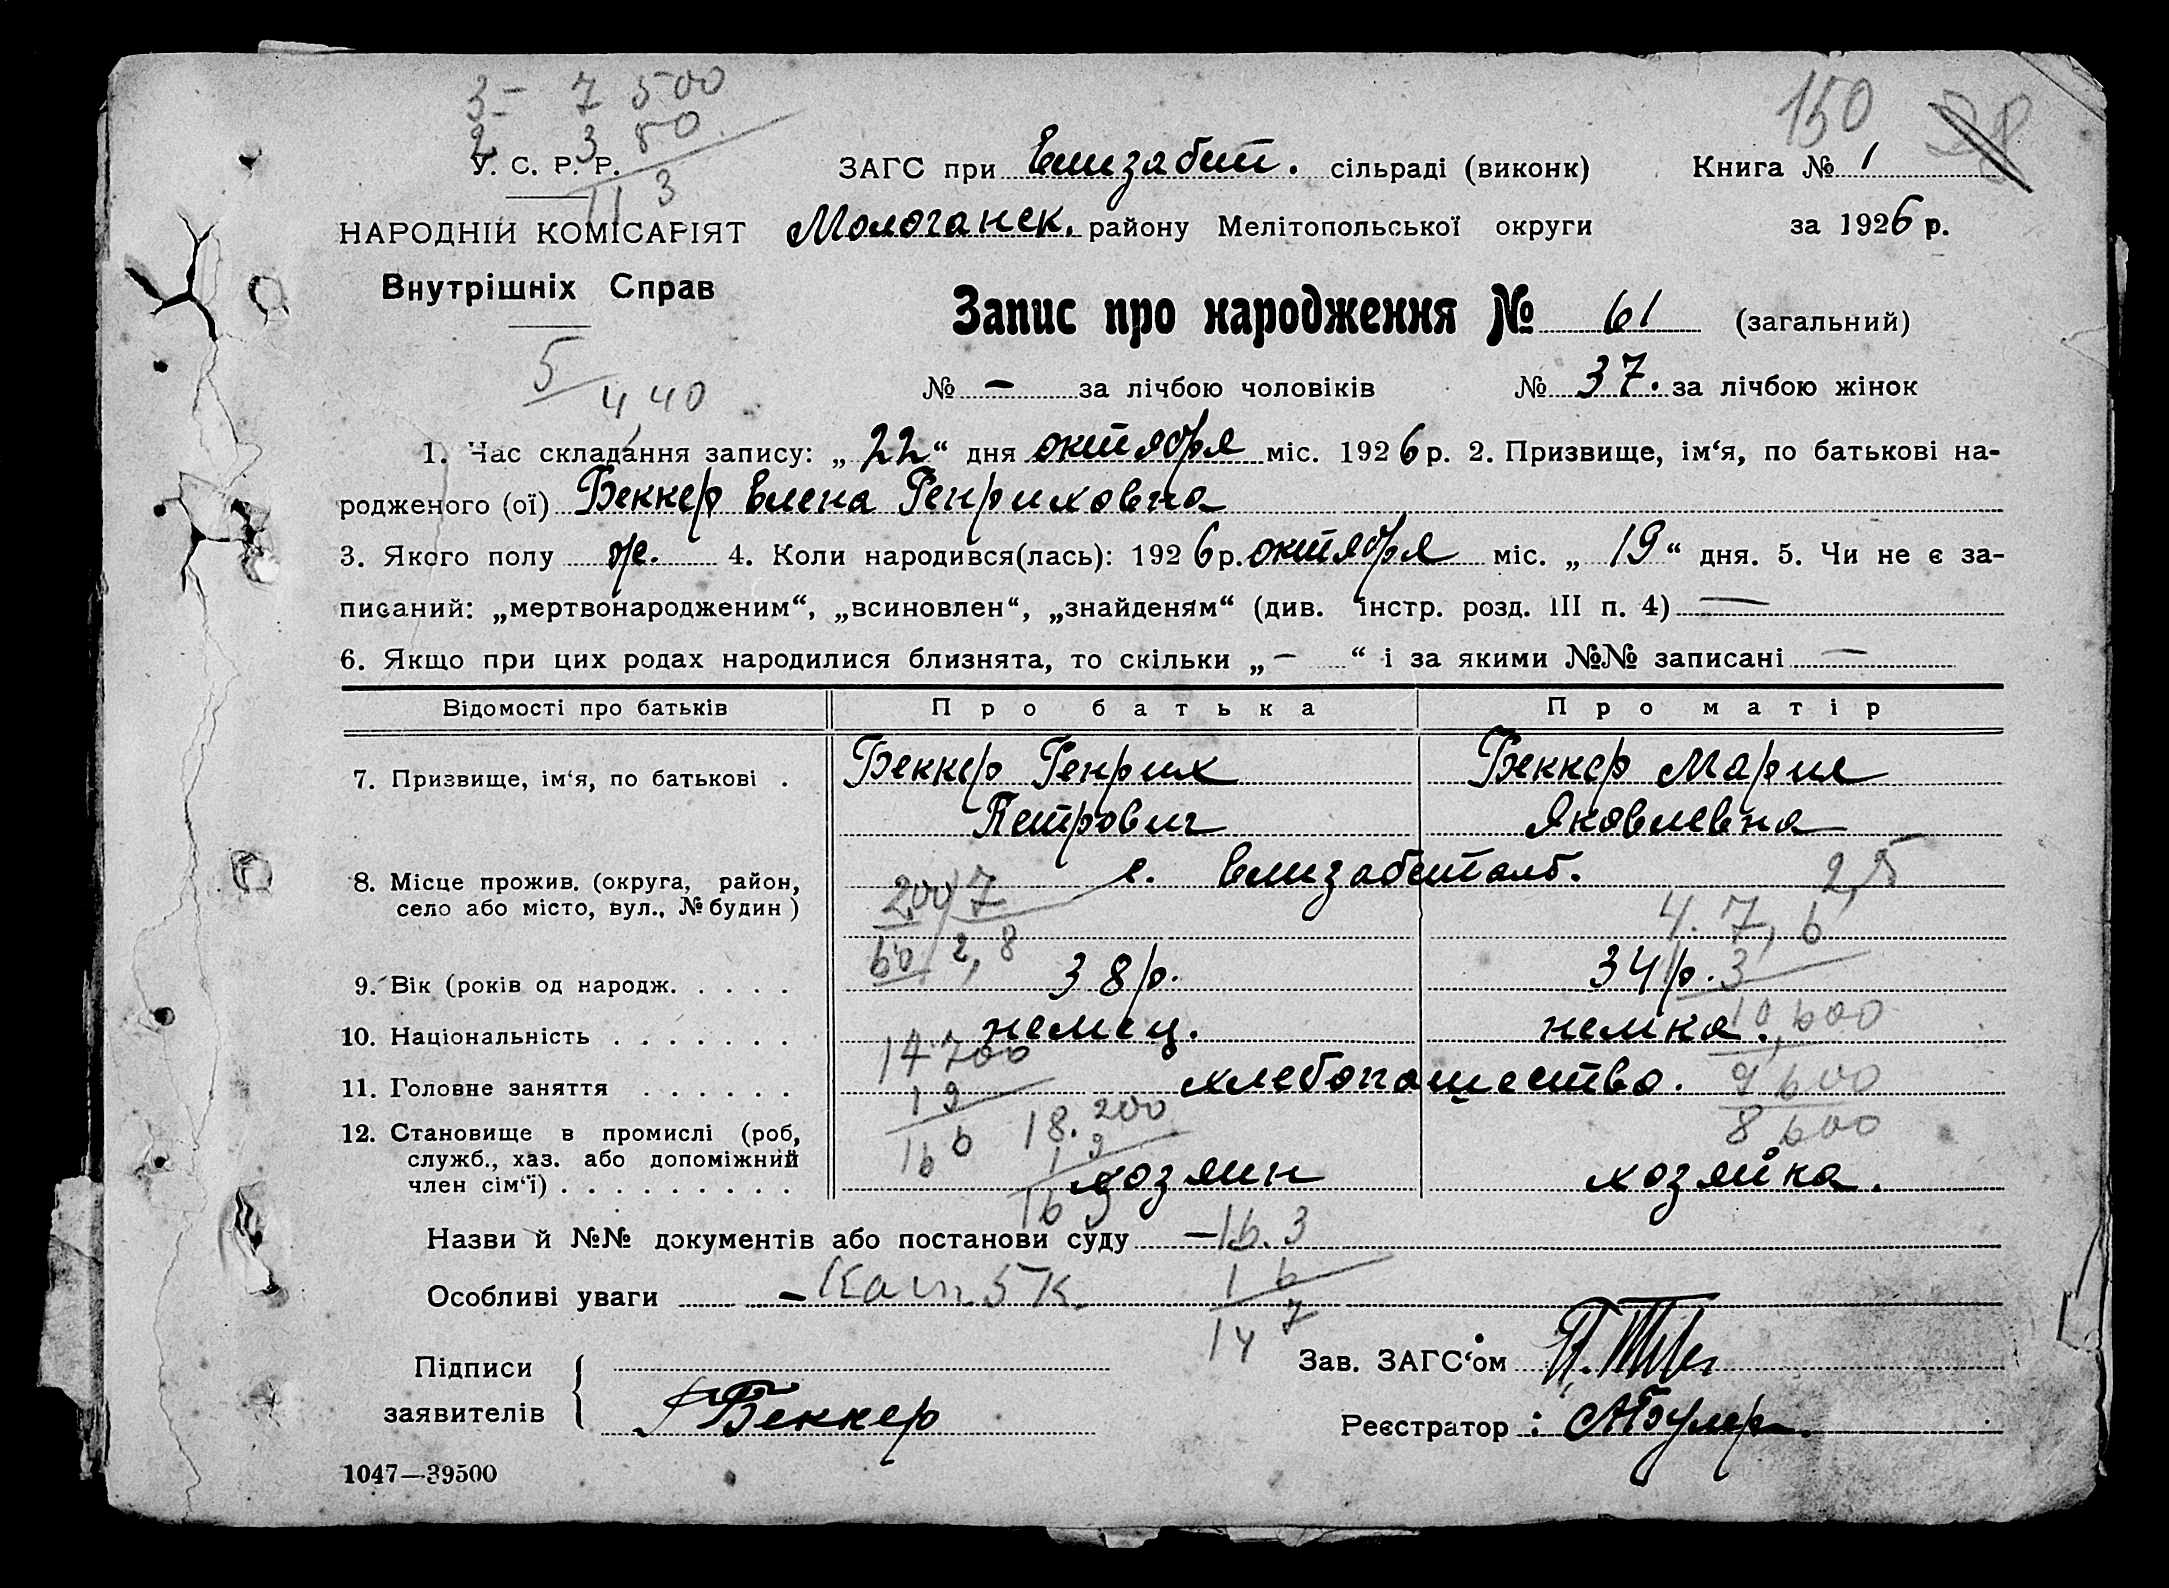 3- 7 500
2 3 80
150 28
У. С. Р. Р. ЗАГС при Елизабет. сільраді (виконк) Книга № 1
11 3
НАРОДНІЙ КОМІСАРІЯТ Молочанск. району Мелітопольської округи за 1926 р.
Внутрішніх Справ
Запис про народження № 61 (загальний)
5
4 40
№ — за лічбою чоловіків № 37. за лічбою жінок
1. Час складання запису: „22“ дня октября міс. 1926 р. 2. Призвище, ім‘я, по батькові на-
родженого (ої) Беккер Елена Генриховна
3. Якого полу ж. 4. Коли народився(лась): 1926 р. октября міс. „19“ дня. 5. Чи не є за-
писаний: „мертвонародженим“, „всиновлен“, „знайденям“ (див. інстр. розд. III п. 4) —
6. Якщо при цих родах народилися близнята, то скільки „—“ і за якими №№ записані —
Відомості про батьків Про батька Про матір
7. Призвище, ім‘я, по батькові . Беккер Генрих Беккер Мария
Петрович Яковлевна
8. Місце прожив. (округа, район, с. Елизабетталь.
село або місто, вул., № будин)
200 7 2,5
60 2,8 4. 7, 6
9. Вік (років од народж. . . . . 38 р. 34 р. 3
10. Національність . . . . . . . немец. немка. 10,600
14.700
11. Головне заняття . . . . . . хлебопашество. 9 600
19 18.200 8 600
12. Становище в промислі (роб,
служб., хаз. або допоміжний
член сім‘ї) . . . . . . . . . хозяин хозяйка.
Назви й №№ документів або постанови суду — 16.3
Особливі уваги — 5 к. 1 6
14 7
Підписи Зав. ЗАГС‘ом
заявителів Беккер Реєстратор:
1047—39500